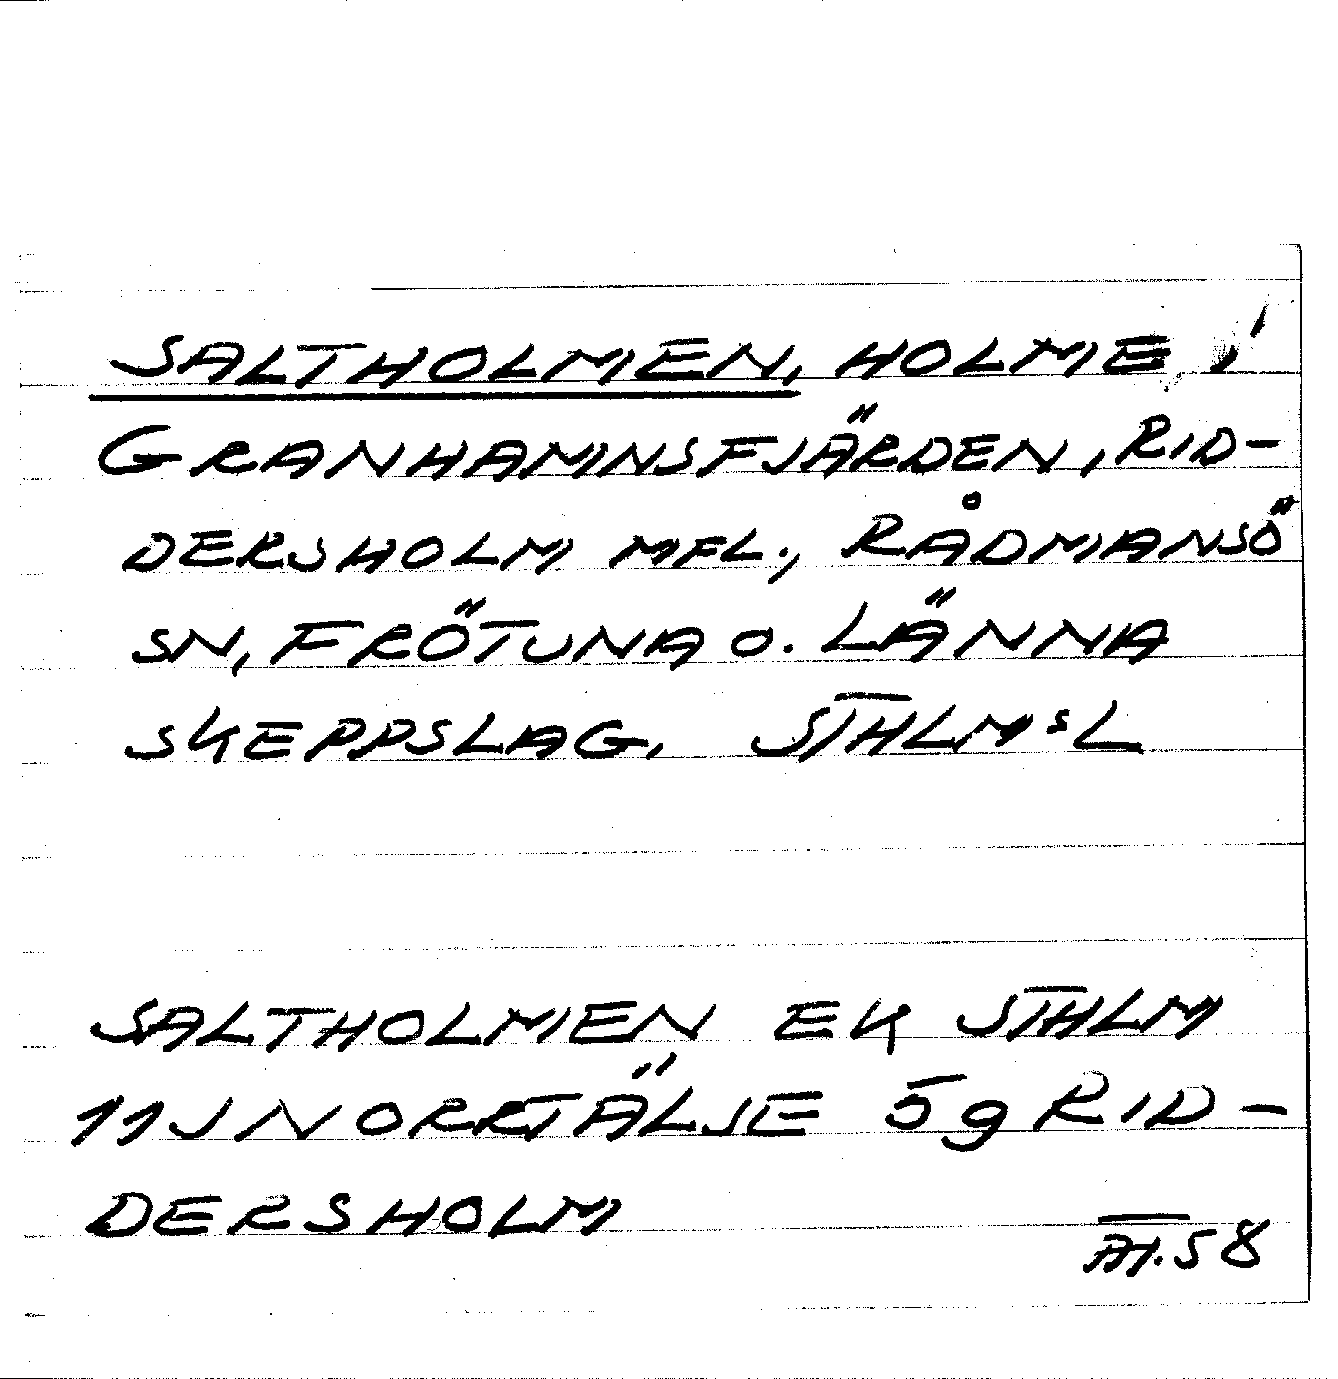 SALTHOLMEN, HOLME I
GRANHAMNSFJÄRDEN, RID-
DERSHOLM MFL., RÅDMANSÖ
SN, FRÖTUNA O. LÄNNA
SKEPPSLAG, STHLMSL
SALTHOLMEN EK STHLM
11J NORRTÄLJE 5g RID-
DERSHOLM
58